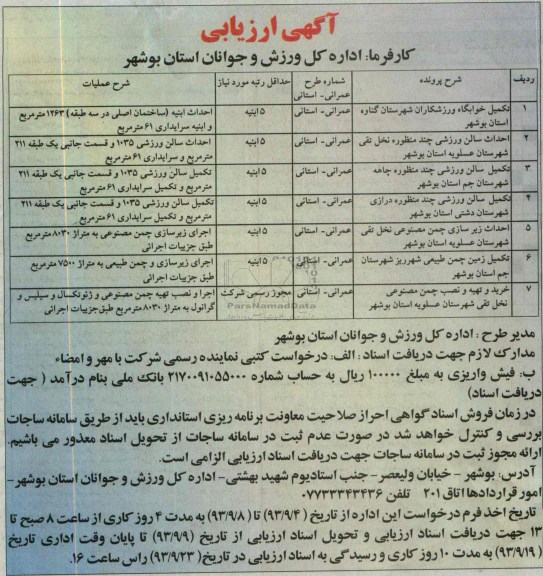 آگهی ارزیابی
کارفرما: اداره کل ورزش و جوانان استان بوشهر
ردیف شرح پرونده شماره طرح عمرانی- استانی حداقل رتبه مورد نیاز شرح عملیات
۱ تکمیل خوابگاه ورزشکاران شهرستان گناوه استان بوشهر عمرانی- استانی ۵ ابنیه احداث ابنیه (ساختمان اصلی در سه طبقه) ۱۲۶۳ مترمربع و ابنیه سرایداری ۶۱ مترمربع
۲ احداث سالن ورزشی چند منظوره نخل تقی شهرستان عسلویه استان بوشهر عمرانی- استانی ۵ ابنیه احداث سالن ورزشی ۱۰۳۵ و قسمت جانبی یک طبقه ۲۱۱ مترمربع و سرایداری ۶۱ مترمربع
۳ تکمیل سالن ورزشی چند منظوره چاهه شهرستان جم استان بوشهر عمرانی- استانی ۵ ابنیه تکمیل سالن ورزشی ۱۰۳۵ و قسمت جانبی یک طبقه ۲۱۱ مترمربع و تکمیل سرایداری ۶۱ مترمربع
۴ تکمیل سالن ورزشی چند منظوره درازی شهرستان دشتی استان بوشهر عمرانی- استانی ۵ ابنیه تکمیل سالن ورزشی ۱۰۳۵ و قسمت جانبی یک طبقه ۲۱۱ مترمربع و تکمیل سرایداری ۶۱ مترمربع
۵ احداث زیر سازی چمن مصنوعی نخل تقی شهرستان عسلویه استان بوشهر عمرانی- استانی ۵ ابنیه اجرای زیرسازی چمن مصنوعی به متراژ ۸۰۳۰ مترمربع طبق جزییات اجرائی
۶ تکمیل زمین چمن طبیعی شهرریز شهرستان جم استان بوشهر عمرانی- استانی ۵ ابنیه اجرای زیرسازی و چمن طبیعی به متراژ ۷۵۰۰ مترمربع طبق جزییات اجرائی
۷ خرید و تهیه و نصب چمن مصنوعی نخل تقی شهرستان عسلویه استان بوشهر عمرانی- استانی مجوز رسمی شرکت اجرا و نصب تهیه چمن مصنوعی و ژئوتکسال و سیلیس و گرانول به متراژ ۸۰۳۰ مترمربع طبق جزییات اجرائی
ParsNamadData
مدیر طرح: اداره کل ورزش و جوانان استان بوشهر
مدارک لازم جهت دریافت اسناد: الف: درخواست کتبی نماینده رسمی شرکت با مهر و امضاء
ب: فیش واریزی به مبلغ ۱۰۰۰۰۰ ریال به حساب شماره ۲۱۷۰۰۹۱۰۵۵۰۰۰ بانک ملی بنام درآمد ( جهت
دریافت اسناد)
در زمان فروش اسناد گواهی احراز صلاحیت معاونت برنامه ریزی استانداری باید از طریق سامانه ساجات
بررسی و کنترل خواهد شد در صورت عدم ثبت در سامانه ساجات از تحویل اسناد معذور می باشیم.
ارائه مجوز ثبت در سامانه ساجات جهت دریافت اسناد ارزیابی الزامی است.
آدرس: بوشهر – خیابان ولیعصر- جنب استادیوم شهید بهشتی- اداره کل ورزش و جوانان استان بوشهر-
امور قراردادها اتاق ۲۰۱ تلفن ۰۷۷۳۳۳۴۳۴۳۶
تاریخ اخذ فرم درخواست این اداره از تاریخ (۹۳/۹/۴) تا (۹۳/۹/۸) به مدت ۴ روز کاری از ساعت ۸ صبح تا
۱۳ جهت دریافت اسناد ارزیابی و تحویل اسناد ارزیابی از تاریخ (۹۳/۹/۹) تا پایان وقت اداری تاریخ
(۹۳/۹/۱۹) به مدت ۱۰ روز کاری و رسیدگی به اسناد ارزیابی در تاریخ (۹۳/۹/۲۳) راس ساعت ۱۶.